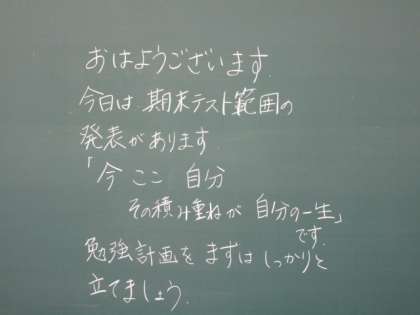 おはようございます.
今日は 期末テスト範囲の
発表があります
「今 ここ 自分
その積み重ねが 自分の一生」
です.
勉強計画を まずは しっかりと
立てましょう.